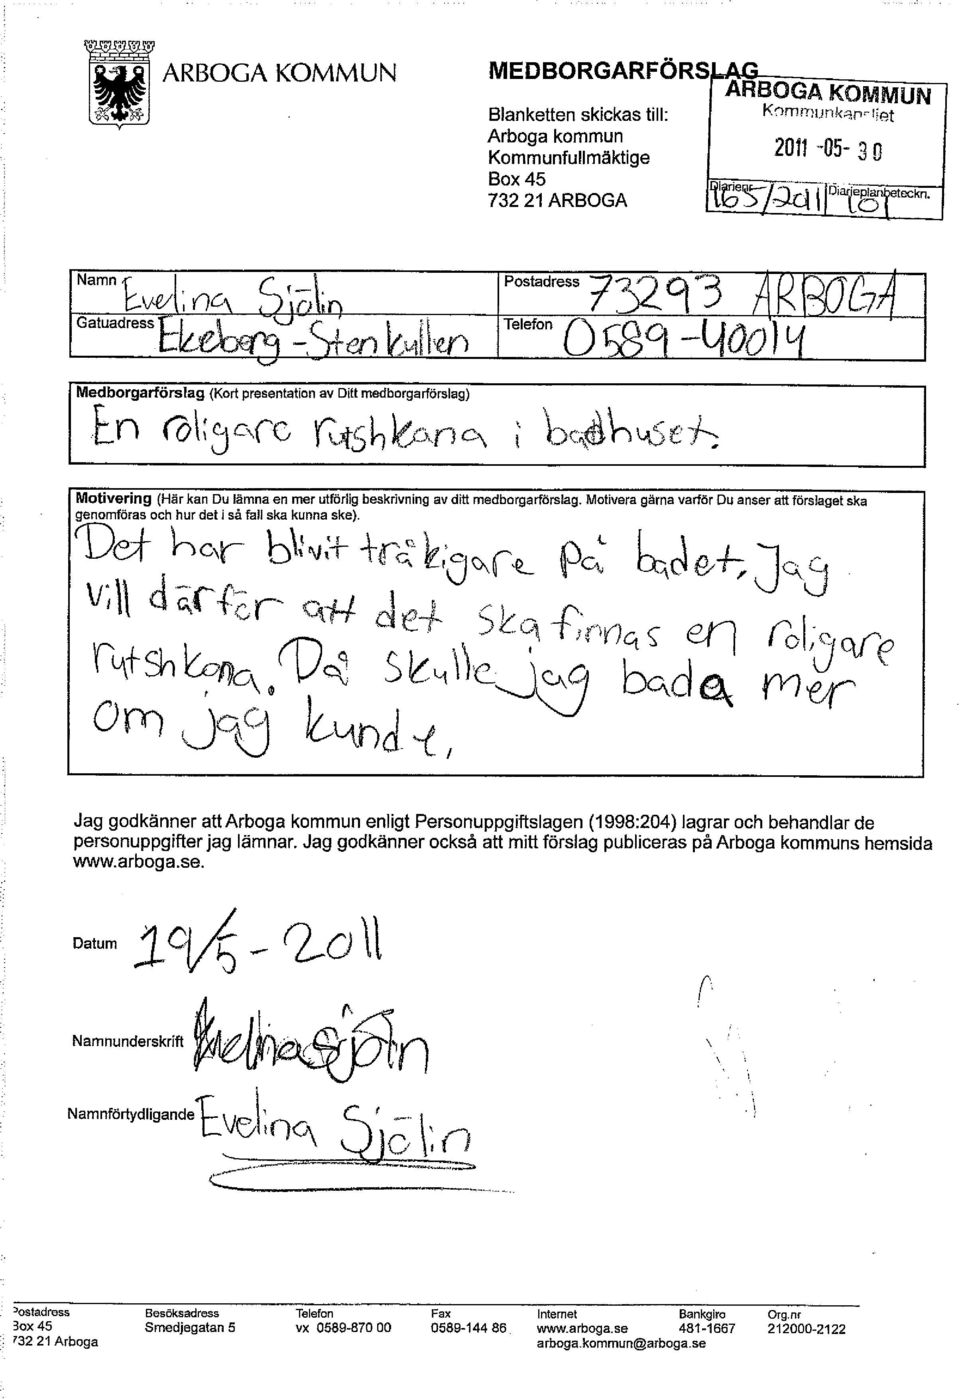 ARBOGA KOMMUN
MEDBORGARFÖRSLAG
Blanketten skickas till:
Arboga kommun
Kommunfullmäktige
Box 45
732 21 ARBOGA
ARBOGA KOMMUN
Kommunkansliet
2011 -05- 30
Diarienr Diarieplanbeteckn.
165/2011 101
Namn Evelina Sjölin
Postadress 73293 ARBOGA
Gatuadress Ekeberg - Stenkullen
Telefon 0589-40014
Medborgarförslag (Kort presentation av Ditt medborgarförslag)
En roligare rutshkana i badhuset.
Motivering (Här kan Du lämna en mer utförlig beskrivning av ditt medborgarförslag. Motivera gärna varför Du anser att förslaget ska
genomföras och hur det i så fall ska kunna ske).
Det har blivit tråkigare på badet, Jag
vill därför att det ska finnas en roligare
rutshkana. Då skulle jag bada mer
om jag kunde,
Jag godkänner att Arboga kommun enligt Personuppgiftslagen (1998:204) lagrar och behandlar de
personuppgifter jag lämnar. Jag godkänner också att mitt förslag publiceras på Arboga kommuns hemsida
www.arboga.se.
Datum 19/5 - 2011
Namnunderskrift Evelina Sjölin
Namnförtydligande Evelina Sjölin
Postadress Besöksadress Telefon Fax Internet Bankgiro Org.nr
Box 45 Smedjegatan 5 vx 0589-870 00 0589-144 86 www.arboga.se 481-1667 212000-2122
732 21 Arboga arboga.kommun@arboga.se